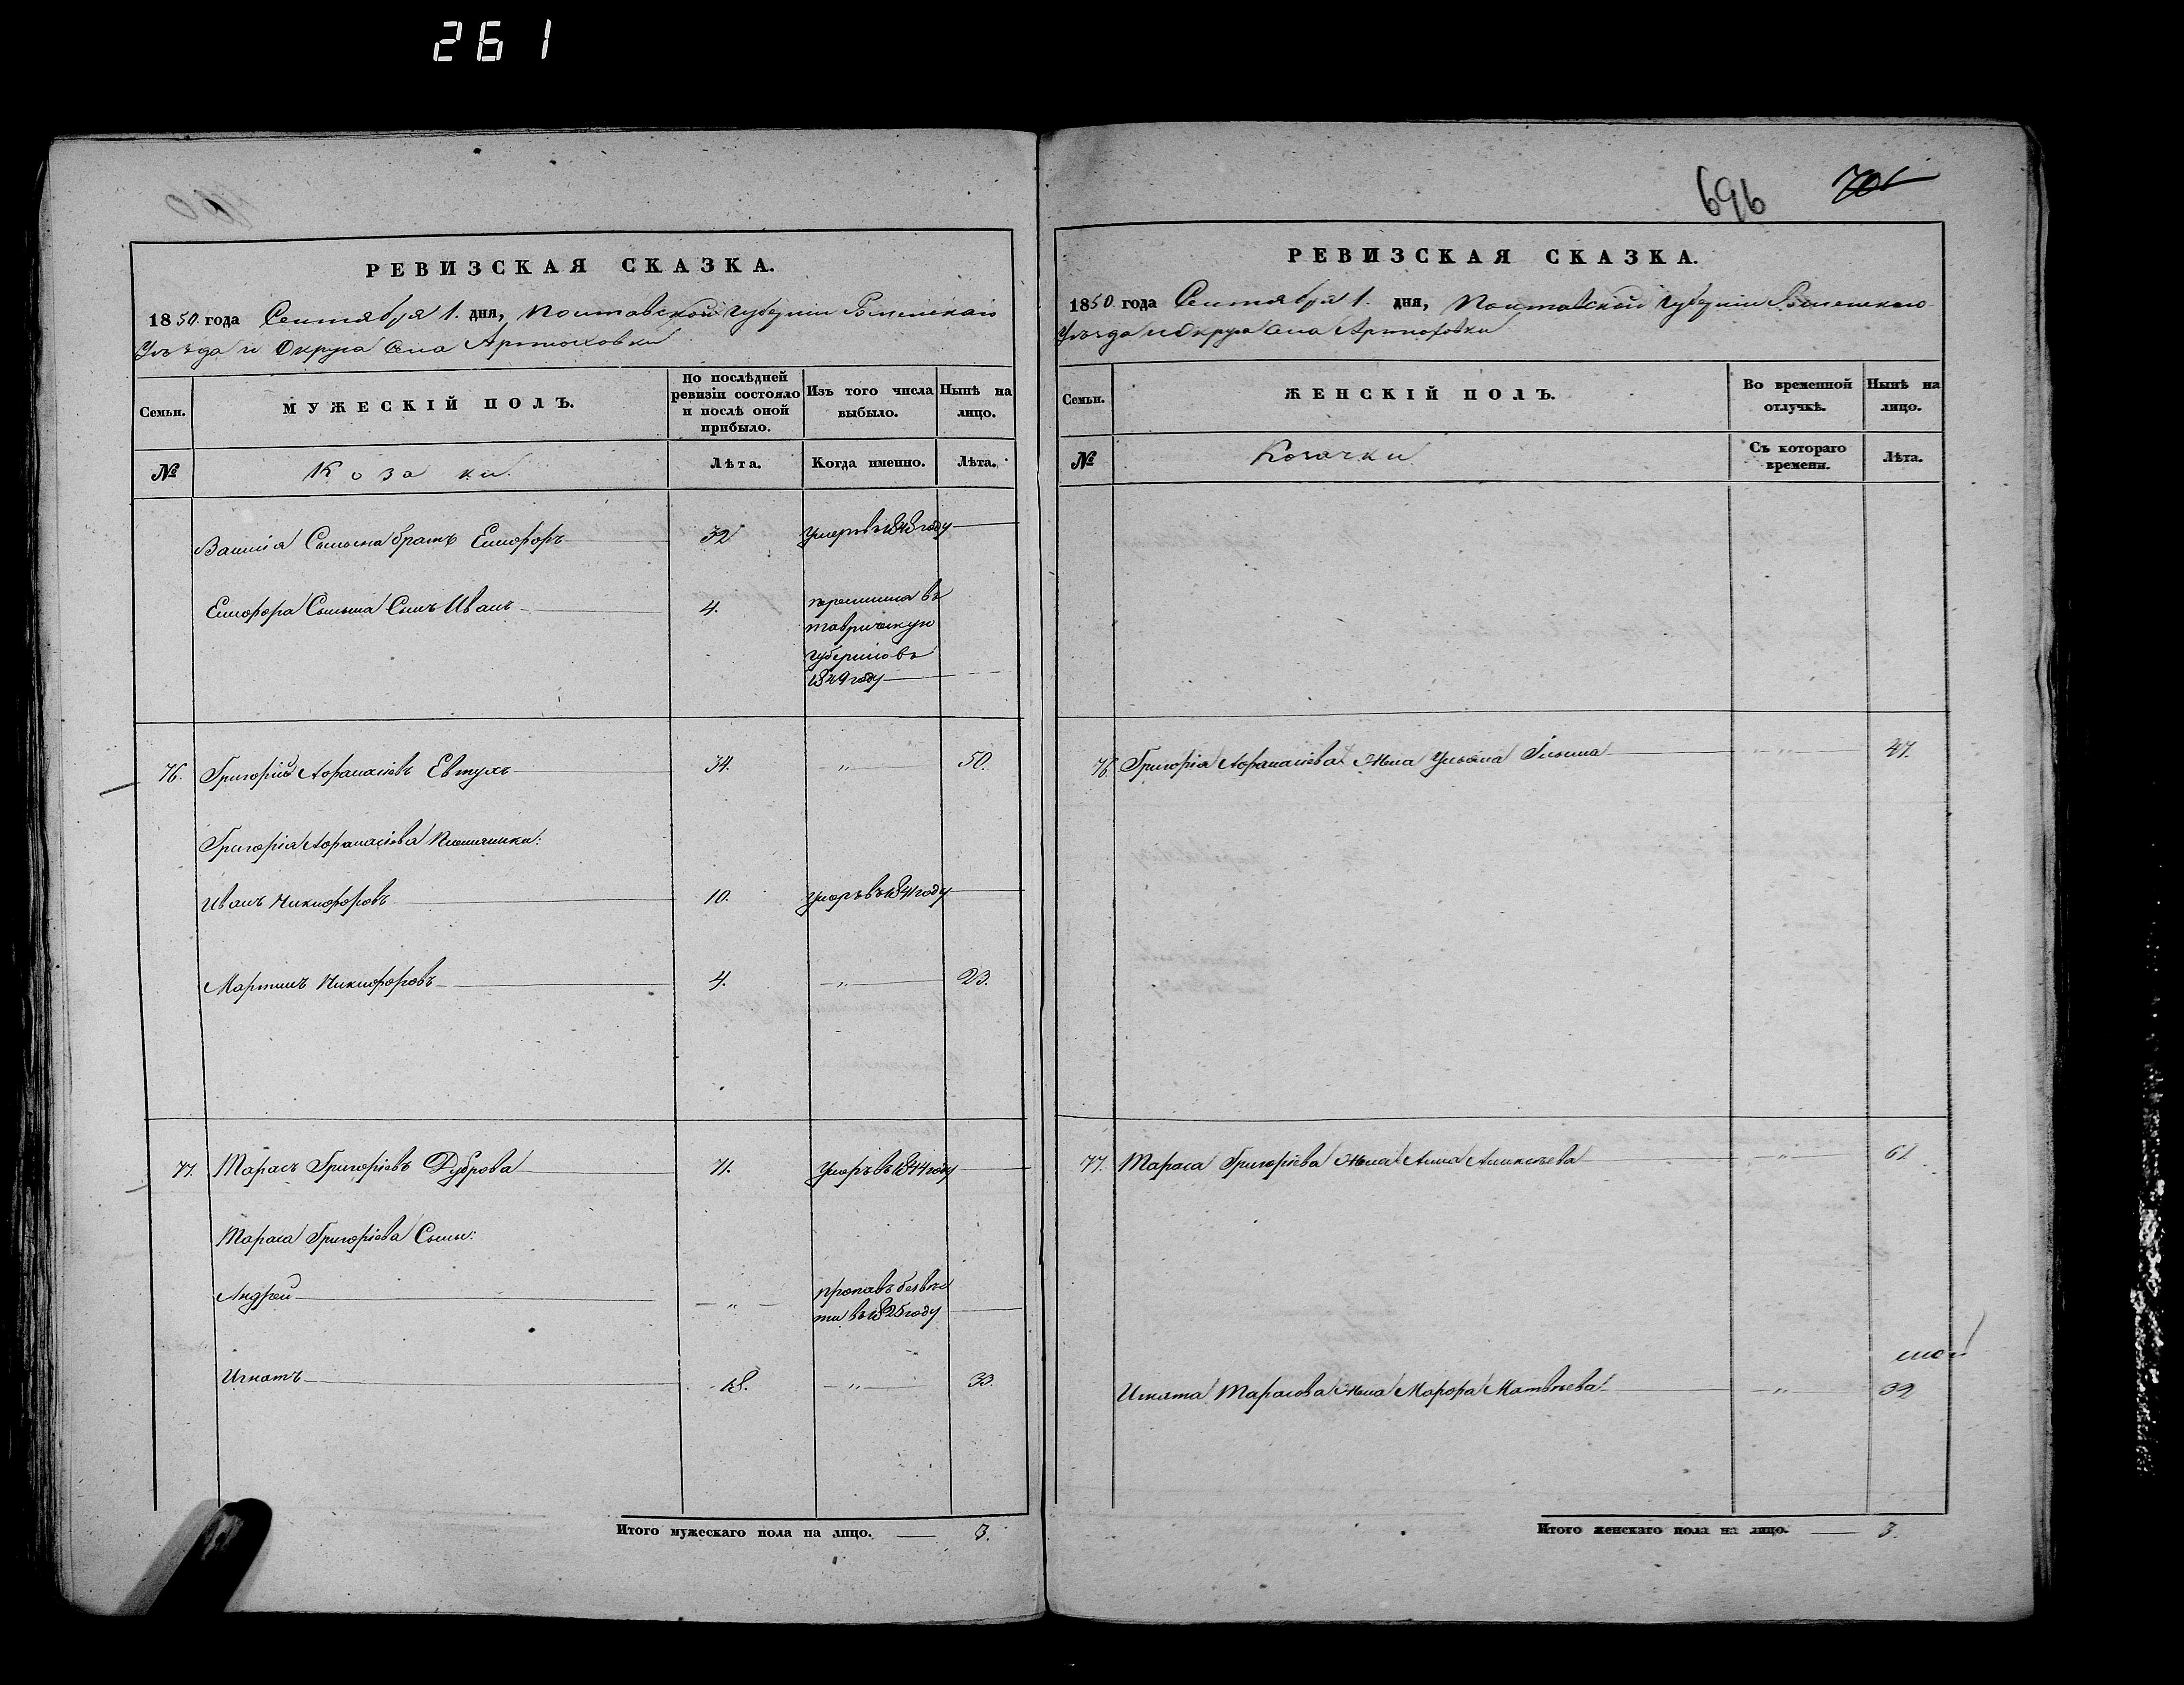 261
РЕВИЗСКАЯ СКАЗКА.
1850. года Сентября 1. дня, Полтавской Губерніи Роменскаго
Уѣзда и Округа Села Артюховки
Семьи.
МУЖЕСКІЙ ПОЛЪ.
По послѣдней ревизіи состояло и послѣ оной прибыло.
Изъ того числа выбыло.
Нынѣ на лицо.
№
Козаки.
Лѣта.
Когда именно.
Лѣта.
братъ
32
Умеръ въ 1843 году
Сынъ Иванъ
4.
въ
таврическую
губернію въ
1849 году
76. Григорій Афанасіевъ Евтухъ
34.
"
50.
Григорія Афанасіева Племянники:
Иванъ Никифоровъ
10.
Умеръ въ 1841 году
Мартинъ Никифоровъ
4.
"
23.
77. Тарасъ Григоріевъ Дуброва
71.
Умеръ въ 1844 году
Тараса Григоріева Сыны:
Андрей
"
пропавъ безвѣс
ти въ 1825 году
Игнатъ
18.
"
33.
Итого мужескаго пола на лицо.
3.
696
701
РЕВИЗСКАЯ СКАЗКА.
1850. года Сентября 1. дня, Полтавской Губерніи Роменскаго
Уѣзда и Округа Села Артюховки
Семьи.
ЖЕНСКІЙ ПОЛЪ.
Во временной отлучкѣ.
Нынѣ на лицо.
№
Козачки
Съ котораго времени.
Лѣта.
76. Григорія Афанасіева Жена Ульяна
"
47.
77. Тараса Григоріева Жена Анна Алексѣева
"
61
Игната Тарасова Жена Марфа Матвѣева
"
32
Итого женскаго пола на лицо.
3.